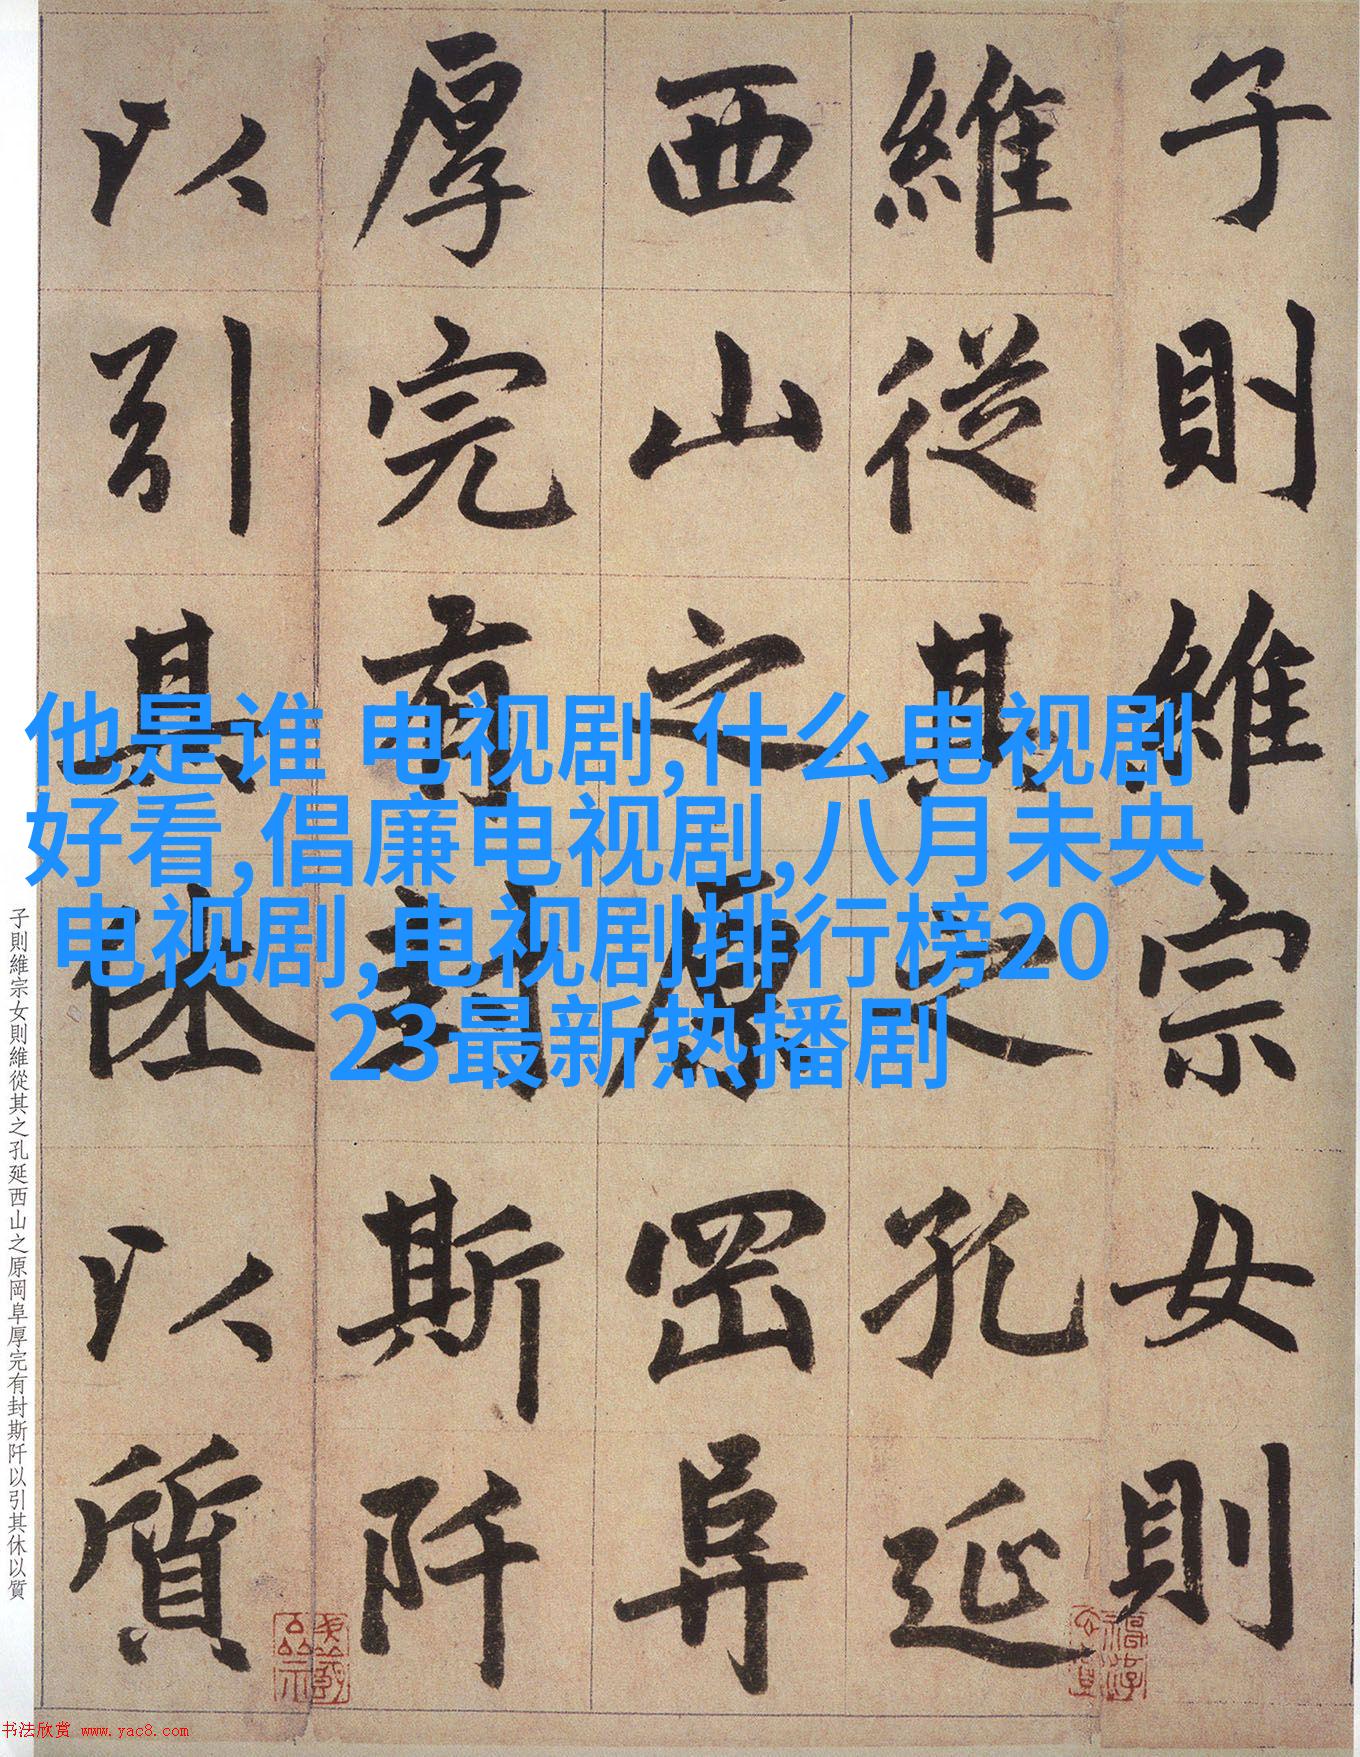 子則維宗女則
維從其之孔延
西山之原罡阜
厚完有封斯阡
以引其休以質
他是谁 电视剧,什么电视剧
好看,倡廉电视剧,八月未央
电视剧,电视剧排行榜20
23最新热播剧
子則維宗女則維從其之孔延西山之原岡阜厚完有封斯阡以引其休以質
书法欣赏 www.yac8.com